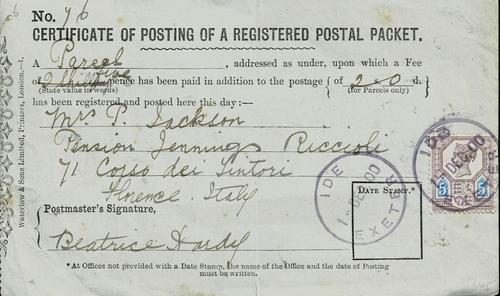 No. 76
CERTIFICATE OF POSTING OF A REGISTERED POSTAL PACKET.
A Parcel, addressed as under, upon which a Fee
of 2 Shill Five pence has been paid in addition to the postage { of 2-0 d.
(State value in words) (for Parcels only)
has been registered and posted here this day:—
Mrs P. Jackson
Pension Jennings Riccioli
71 Corso dei Tintori
Florence. Italy
Postmaster's Signature,
Beatrice Hardy
DATE STAMP.*
IDE
DEC 00
EXETER
IDE
DEC 00
5 5
*At Offices not provided with a Date Stamp, the name of the Office and the date of Posting
must be written.
Waterlow & Sons Limited, Printers, London.—1.